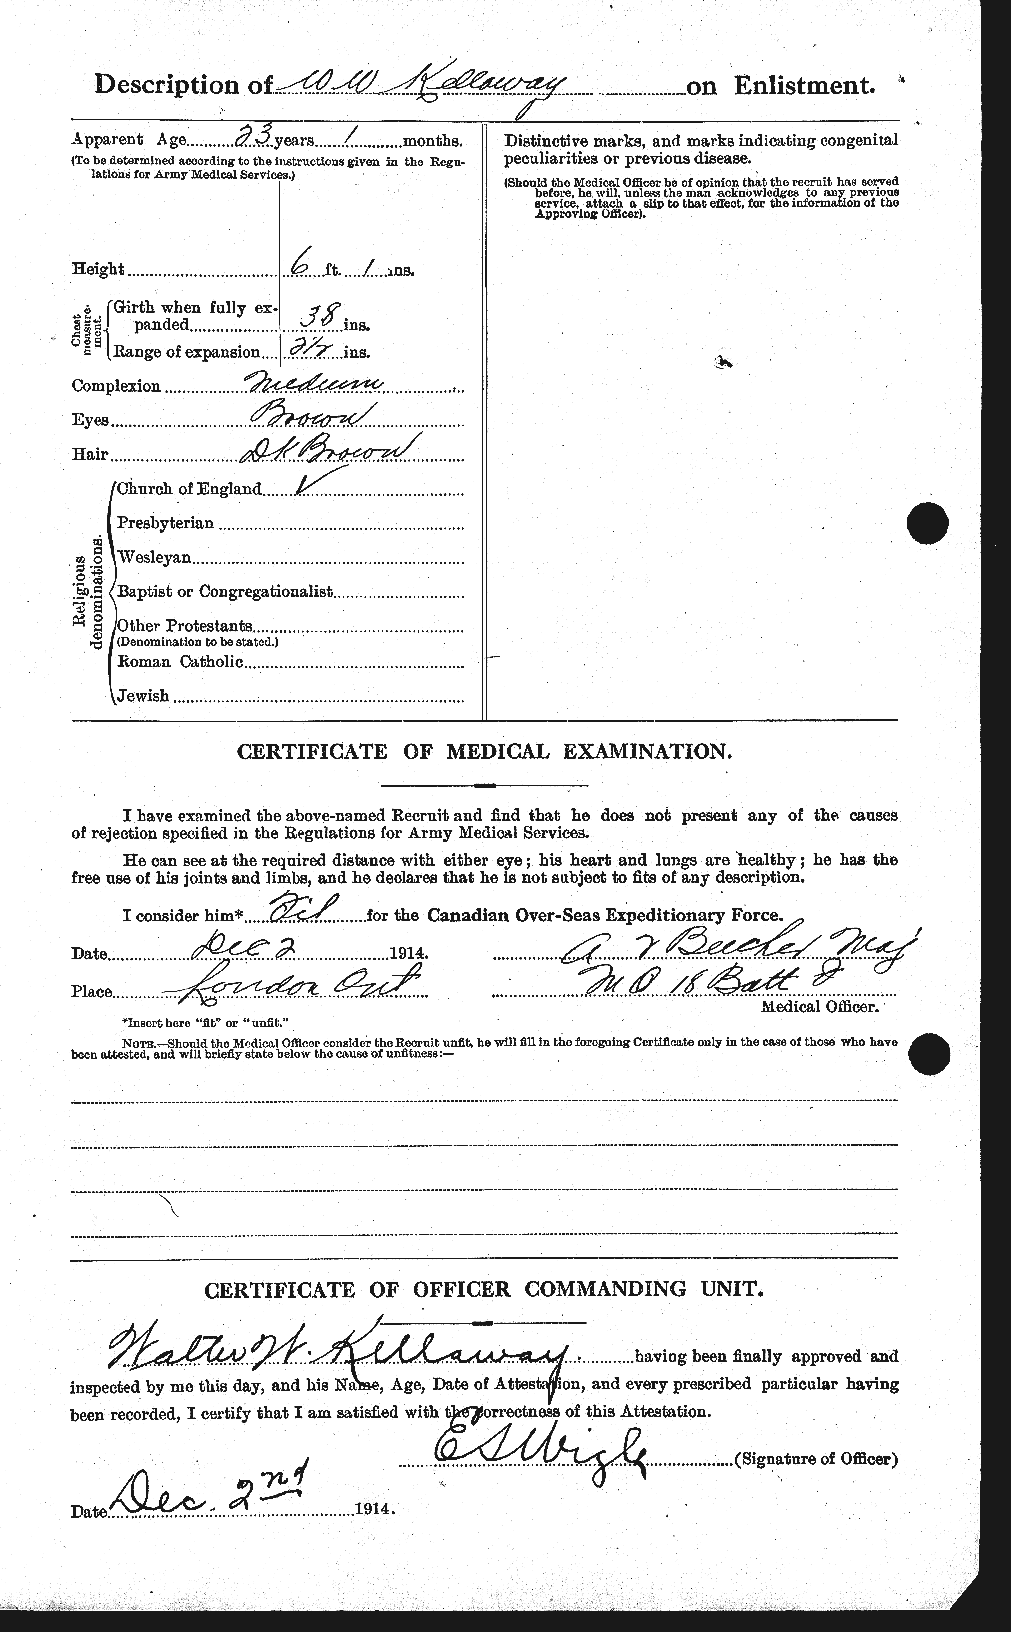 Description of W W Kellaway on Enlistment.
Apparent Age 23 years 1 months.
(To be determined according to the instructions given in the Regu-
lations for Army Medical Services.)
Height 6 ft. 1 ins.
Chest measure-ment.
Girth when fully ex-
panded 38 ins.
Range of expansion 2 1/2 ins.
Complexion Medium
Eyes Brown
Hair Dk Brown
Religious denominations.
Church of England ✓
Presbyterian
Wesleyan
Baptist or Congregationalist
Other Protestants
(Denomination to be stated.)
Roman Catholic
Jewish
Distinctive marks, and marks indicating congenital
peculiarities or previous disease.
(Should the Medical Officer be of opinion that the recruit has served
before, he will, unless the man acknowledges to any previous
service, attach a slip to that effect, for the information of the
Approving Officer).
CERTIFICATE OF MEDICAL EXAMINATION.
I have examined the above-named Recruit and find that he does not present any of the causes
of rejection specified in the Regulations for Army Medical Services.
He can see at the required distance with either eye; his heart and lungs are healthy; he has the
free use of his joints and limbs, and he declares that he is not subject to fits of any description.
I consider him* Fit for the Canadian Over-Seas Expeditionary Force.
Date Dec 2 1914. A Beecher Maj
Place London Ont M O 18 Batt
Medical Officer.
*Insert here "fit" or "unfit."
NOTE.—Should the Medical Officer consider the Recruit unfit, he will fill in the foregoing Certificate only in the case of those who have
been attested, and will briefly state below the cause of unfitness:—
CERTIFICATE OF OFFICER COMMANDING UNIT.
Walter W. Kellaway. having been finally approved and
inspected by me this day, and his Name, Age, Date of Attestation, and every prescribed particular having
been recorded, I certify that I am satisfied with the correctness of this Attestation.
E S Wigle (Signature of Officer)
Date Dec. 2nd 1914.